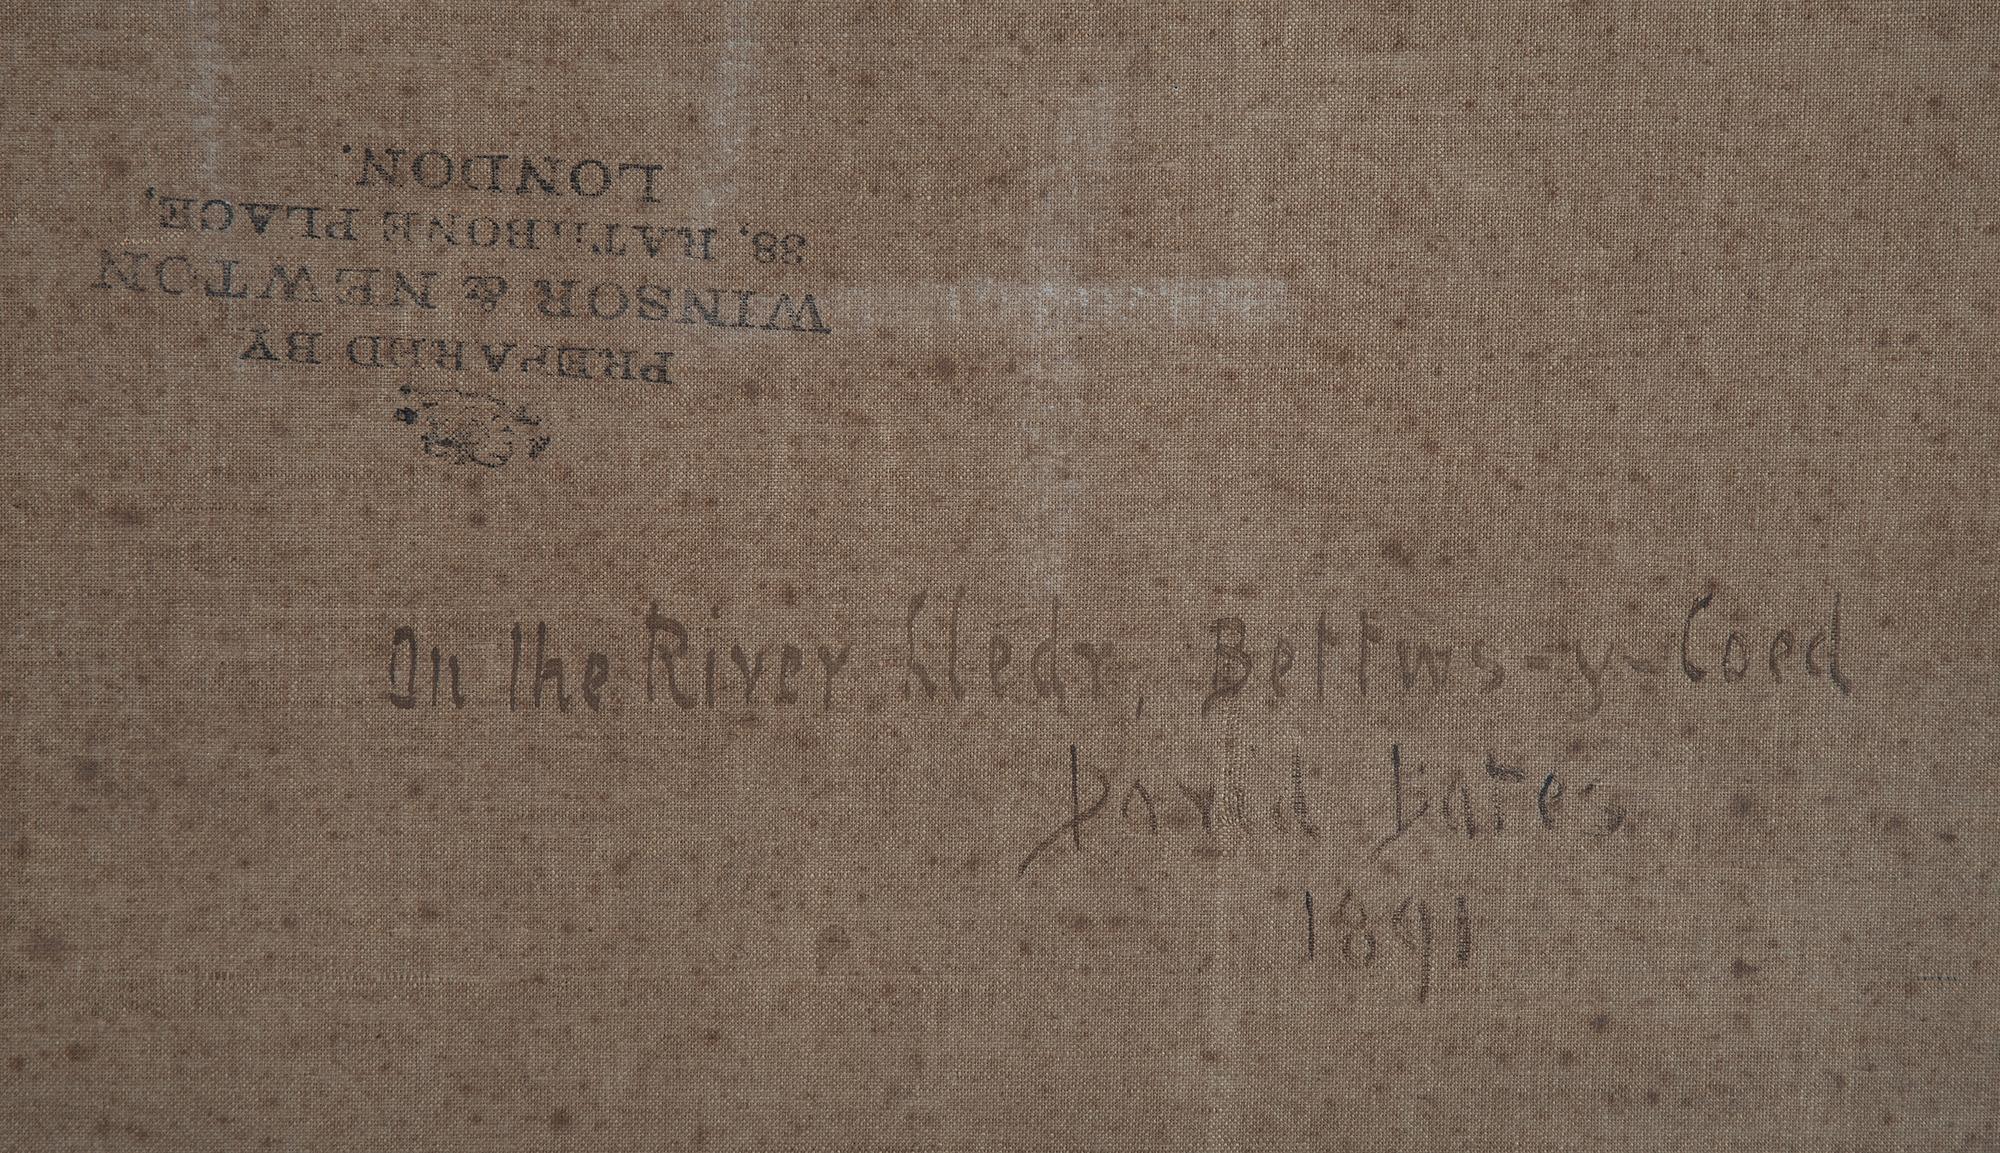 PREPARED BY
WINSOR & NEWTON
38, RATHBONE PLACE,
LONDON.
On the River Lledr, Bettws-y-Coed
David Bates
1891